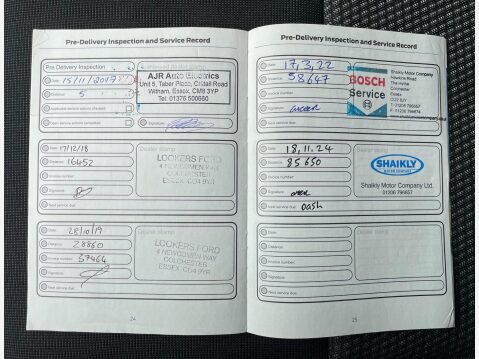 Pre-Delivery Inspection and Service Record
Pre-Delivery Inspection
Date: 15/11/2017
Distance: 5
Applicable service actions checked:
Signature:
AJR Auto Electrics
Unit 5, Taber Place, Crittall Road
Witham, Essex, CM8 3YP
Tel: 01376 500660
Date: 17/12/18
Distance: 16452
Invoice number:
Signature:
Next service due:
Dealer stamp
LOOKERS FORD
4 NEWCOMEN WAY
COLCHESTER
ESSEX CO4 9YR
Date: 28/10/19
Distance: 28860
Invoice number: 57464
Signature:
Next service due:
Dealer stamp
LOOKERS FORD
4 NEWCOMEN WAY
COLCHESTER
ESSEX CO4 9YR
24
Pre-Delivery Inspection and Service Record
Date: 17,3,22
Distance: 58647
Invoice number:
Signature:
Next service due:
BOSCH
Service
Shaikly Motor Company
Colchester
Essex
Date: 18,11.24
Distance: 85650
Invoice number:
Signature:
Next service due: Dash
Dealer stamp
SHAIKLY
MOTOR COMPANY
Shaikly Motor Company Ltd.
01206 796657
Date:
Distance:
Invoice number:
Signature:
Next service due:
Dealer stamp
25